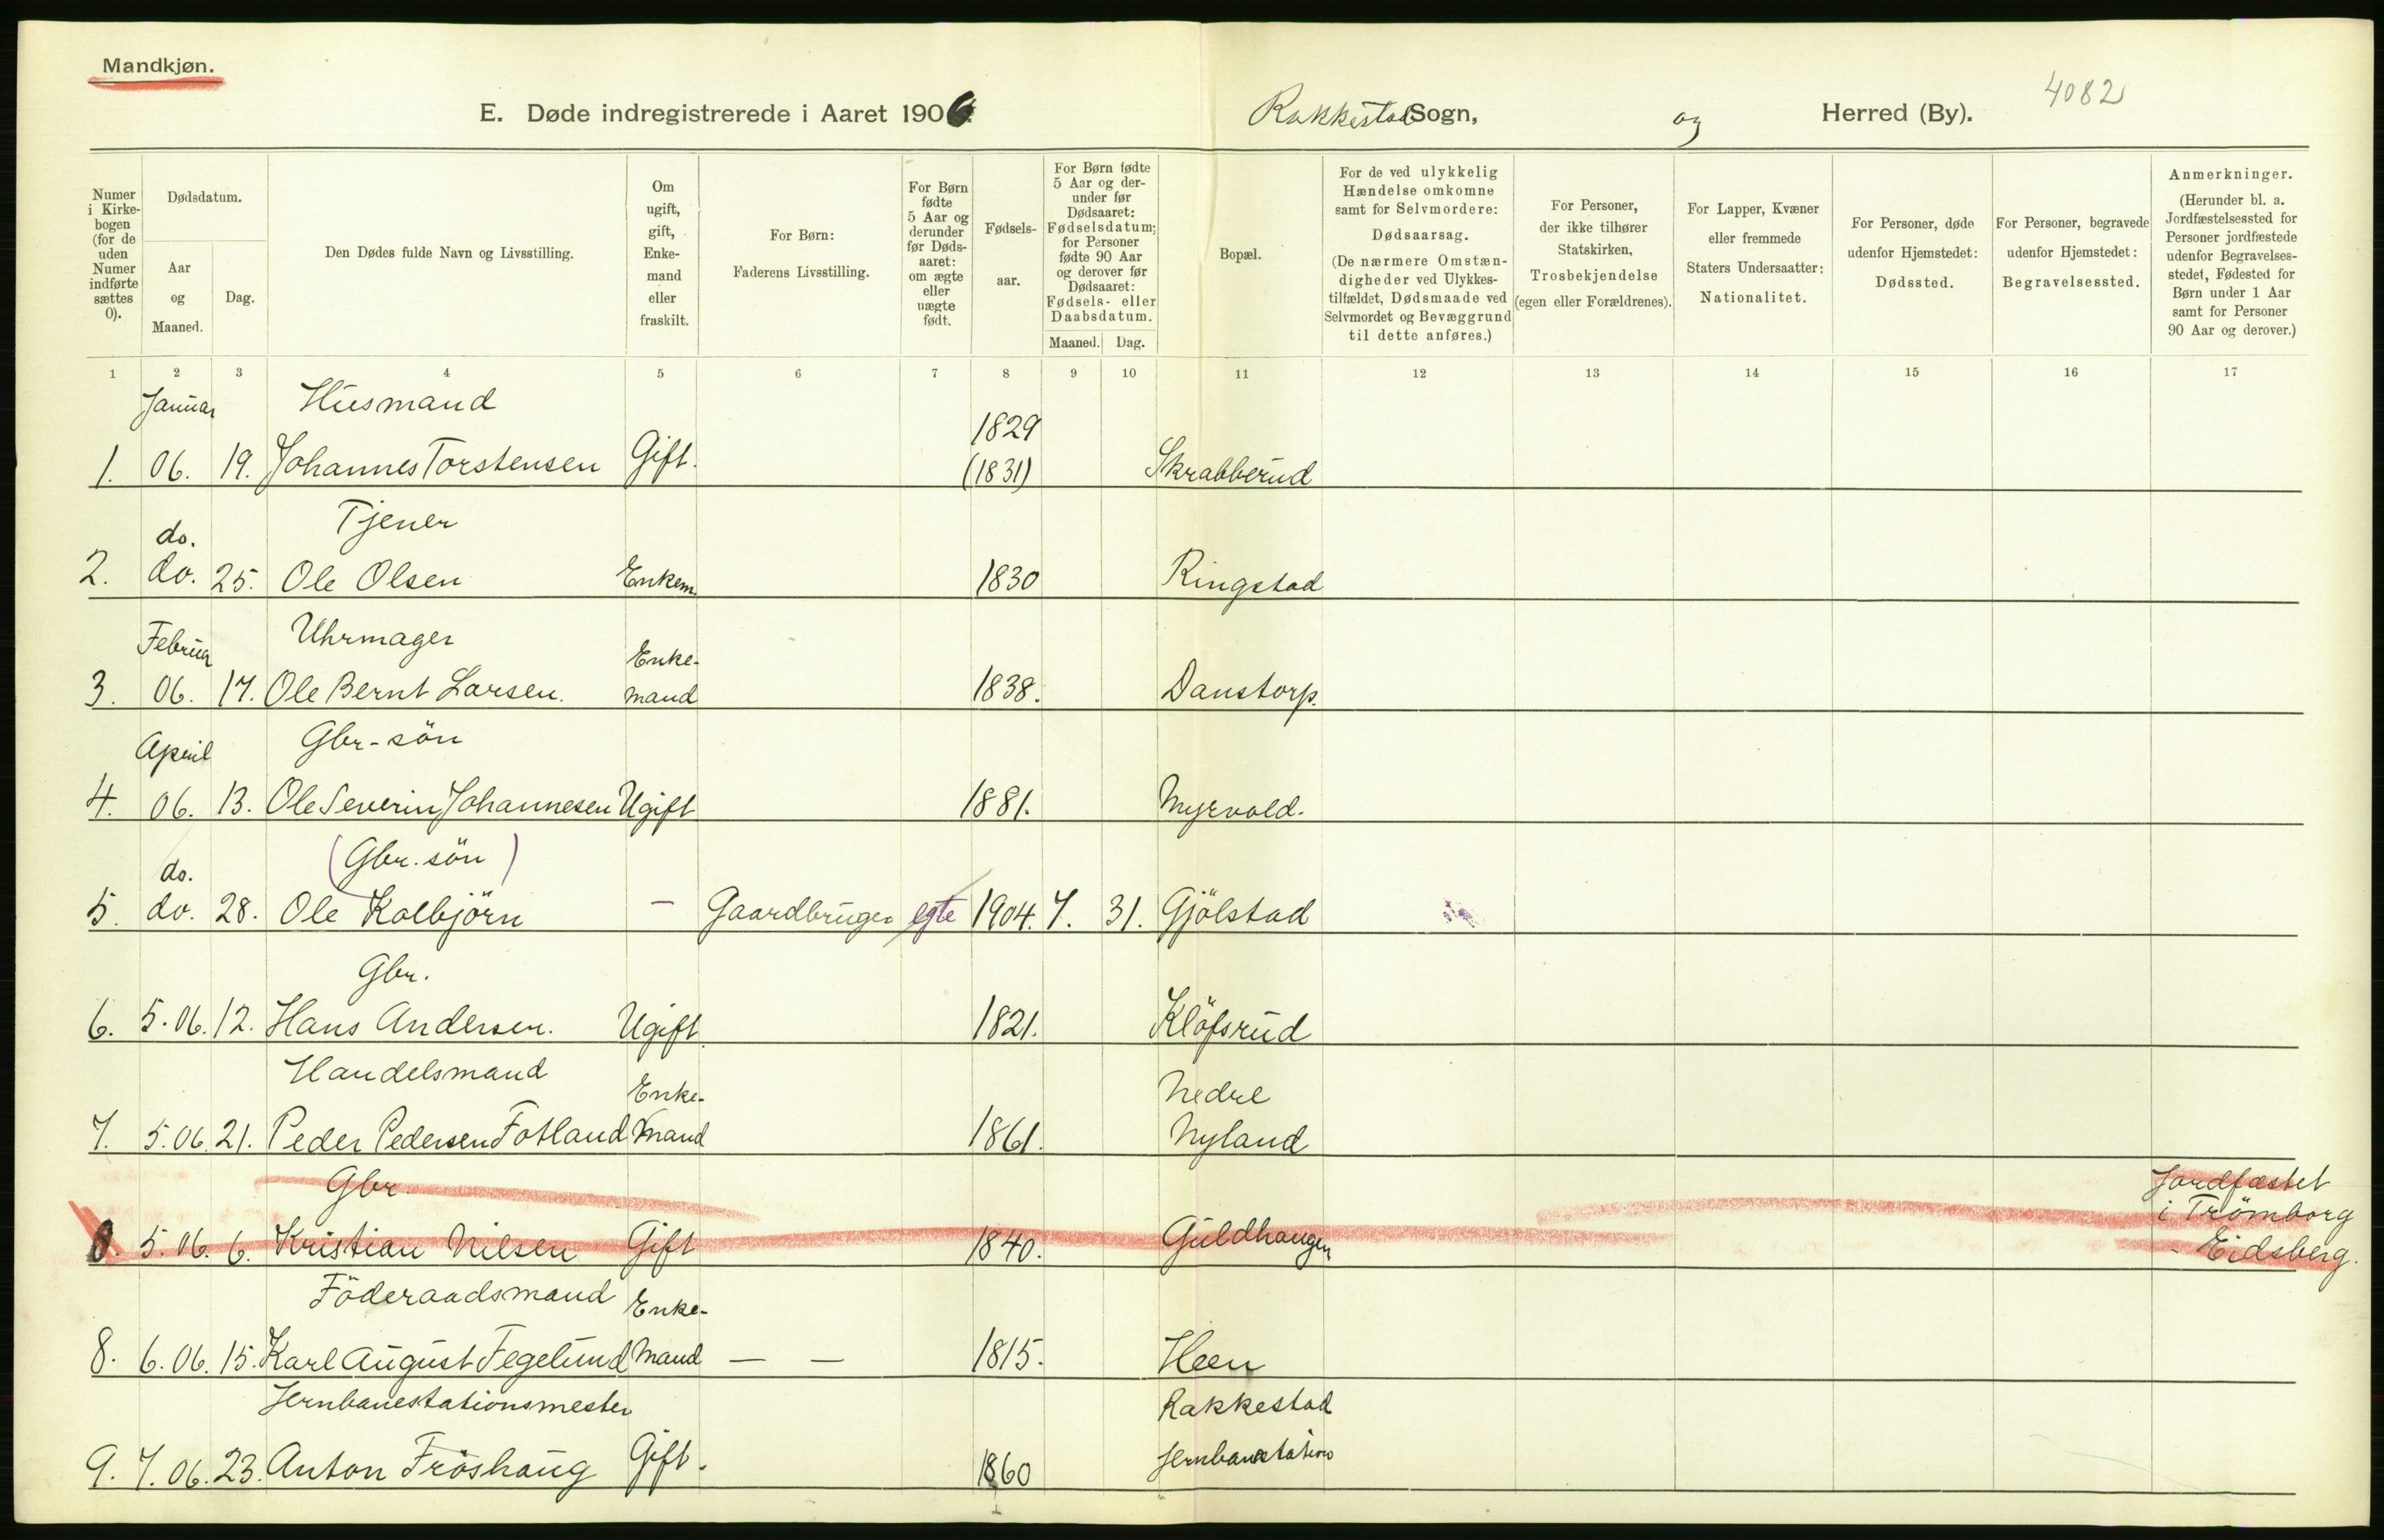 Mandkjøn.
4082
E. Døde indregistrerede i Aaret 1906. Rakkestad Sogn, og Herred (By).
Numer i Kirkebogen (for de uden Numer indførte sættes 0).
Dødsdatum.
Aar og Maaned.
Dag.
Den Dødes fulde Navn og Livsstilling.
Om ugift, gift, Enkemand eller fraskilt.
For Børn: Faderens Livsstilling.
For Børn fødte 5 Aar og derunder før Dødsaaret: om ægte eller uægte født.
Fødselsaar.
For Børn fødte 5 Aar og derunder før Dødsaaret: Fødselsdatum; for Personer fødte 90 Aar og derover før Dødsaaret: Fødsels- eller Daabsdatum.
Maaned. Dag.
Bopæl.
For de ved ulykkelig Hændelse omkomne samt for Selvmordere: Dødsaarsag. (De nærmere Omstændigheder ved Ulykkestilfældet, Dødsmaade ved Selvmordet og Bevæggrund til dette anføres.)
For Personer, der ikke tilhører Statskirken, Trosbekjendelse (egen eller Forældrenes).
For Lapper, Kvæner eller fremmede Staters Undersaatter: Nationalitet.
For Personer, døde udenfor Hjemstedet: Dødssted.
For Personer, begravede udenfor Hjemstedet: Begravelsessted.
Anmerkninger. (Herunder bl. a. Jordfæstelsessted for Personer jordfæstede udenfor Begravelsesstedet, Fødested for Børn under 1 Aar samt for Personer 90 Aar og derover.)
1 2 3 4 5 6 7 8 9 10 11 12 13 14 15 16 17
Januar Husmand 1829
1. 06. 19. Johannes Torstensen Gift. (1831) Skrabberud
do. Tjener
2. do. 25. Ole Olsen Enkem. 1830 Ringstad
Februar Uhrmager Enke-
3. 06. 17. Ole Bernt Larsen. mand 1838. Danstorp.
April Gbr-sön
4. 06. 13. Ole Severin Johannesen Ugift 1881. Myrvold.
do. (Gbr. sön)
5. do. 28. Ole Kolbjörn — Gaardbruger egte 1904. 7. 31. Gjölstad
Gbr.
6. 5.06. 12. Hans Andersen. Ugift. 1821. Klöfsrud
Handelsmand Enke- Nedre
7. 5.06. 21. Peder Pedersen Fotland mand 1861. Nyland
Gbr. Jordfæstet
i Trömborg
0. 5.06. 6. Kristian Nilsen Gift 1840. Guldhaugen - Eidsberg.
Föderaadsmand Enke-
8. 6.06. 15. Karl August Fegelund mand — — 1815. Heen
Jernbanestationsmester Rakkestad
9. 7.06. 23. Anton Fröshaug Gift. 1860 Jernbanestation